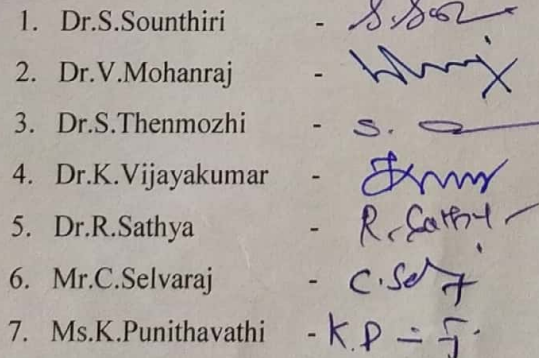 1. Dr.S.Sounthiri -
2. Dr.V.Mohanraj -
3. Dr.S.Thenmozhi - S.
4. Dr.K.Vijayakumar -
5. Dr.R.Sathya - R.
6. Mr.C.Selvaraj -
7. Ms.K.Punithavathi - K.P